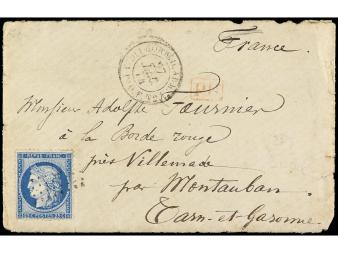 France.
PD
Monsieur Adolphe Fournier
à la Borde rouge
près Villemade
par Montauban
Tarn-et-Garonne
REPUB. FRANC.
25 C. POSTES 25 C.